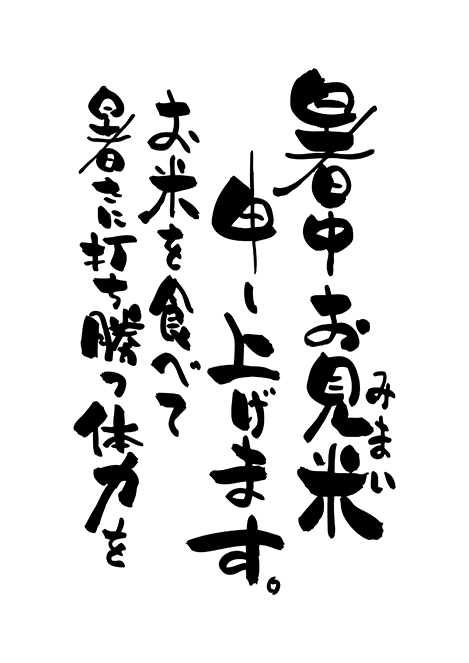 暑中お見米
みまい
申し上げます。
お米を食べて
暑さに打ち勝つ体力を